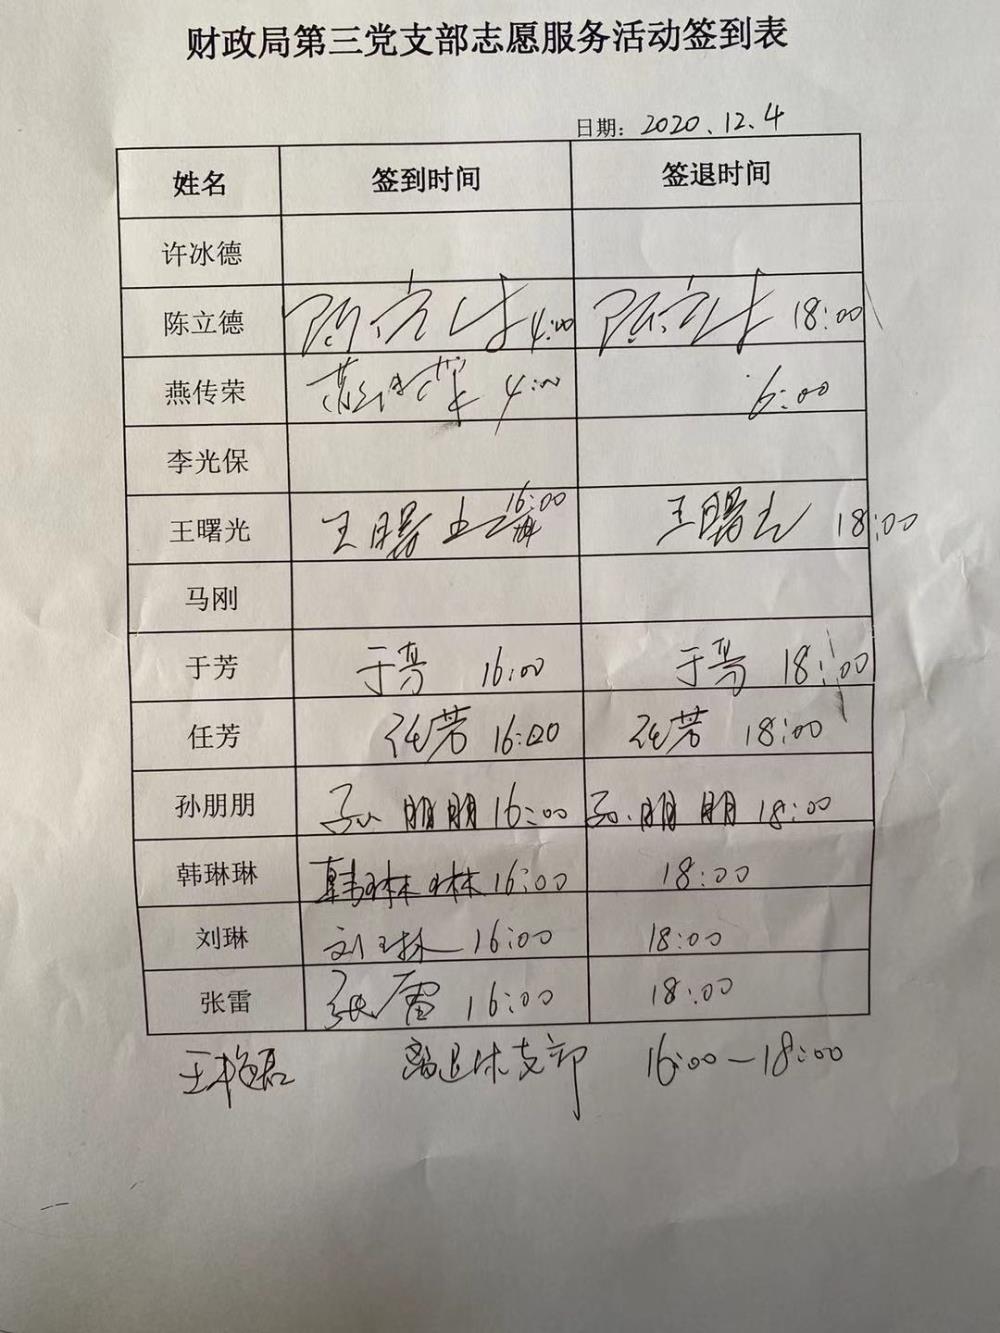 财政局第三党支部志愿服务活动签到表
日期: 2020.12.4
姓名 签到时间 签退时间
许冰德
陈立德 陈立德 4:00 陈立德 18:00
燕传荣 燕传荣 4:00 6:00
李光保
王曙光 王曙光 16:00 王曙光 18:00
马刚
于芳 于芳 16:00 于芳 18:00
任芳 任芳 16:00 任芳 18:00
孙朋朋 孙朋朋 16:00 孙朋朋 18:00
韩琳琳 韩琳琳 16:00 18:00
刘琳 刘琳 16:00 18:00
张雷 张雷 16:00 18:00
离退休支部 16:00-18:00